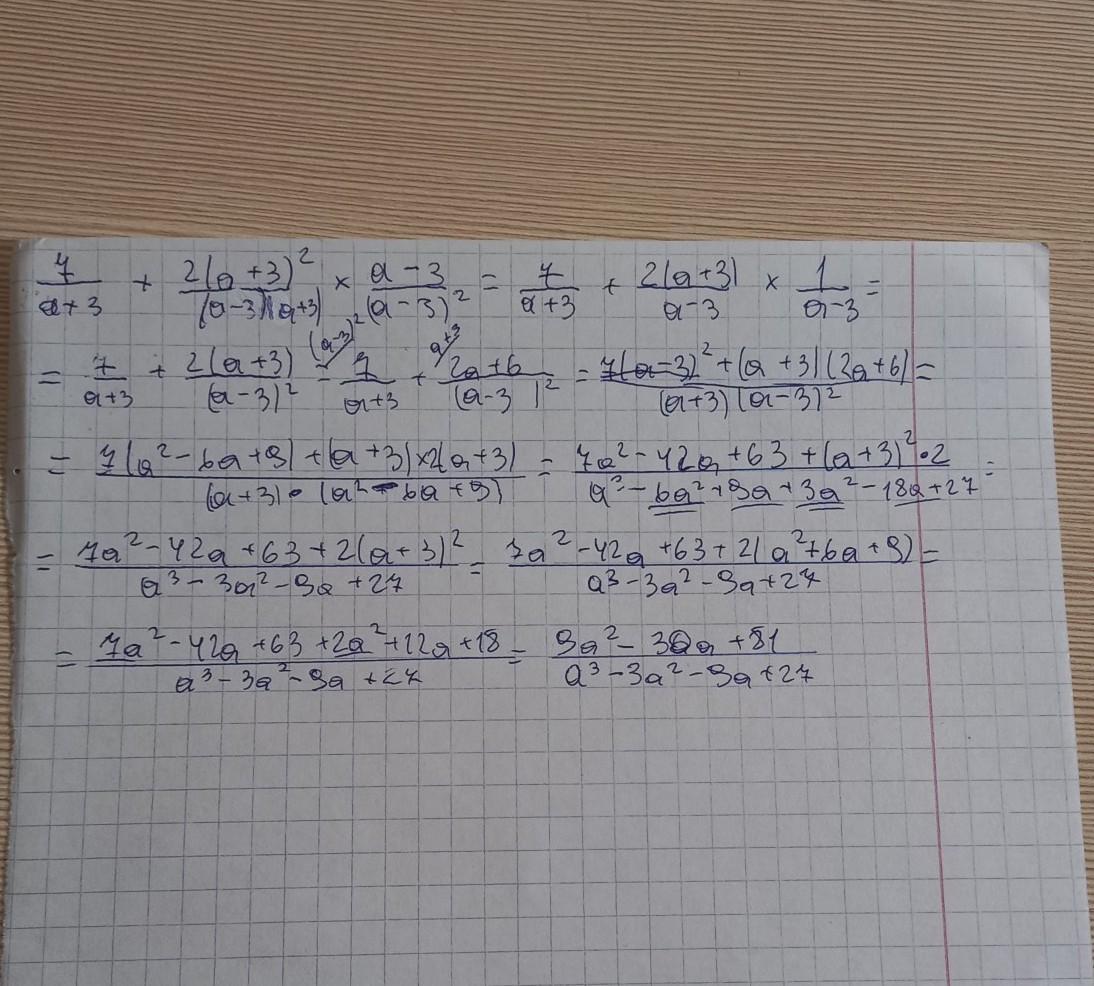 7/(a+3) + 2(a+3)²/((a-3)(a+3)) × (a-3)/(a-3)² = 7/(a+3) + 2(a+3)/(a-3) × 1/(a-3) =
= 7/(a+3) + 2(a+3)/(a-3)² = (a-3)²/ 7/(a+3) + a+3/ (2a+6)/(a-3)² = (7(a-3)² + (a+3)(2a+6))/((a+3)(a-3)²) =
= (7(a²-6a+9) + (a+3)×2(a+3))/((a+3)·(a²-6a+9)) = (7a²-42a+63+(a+3)²·2)/(a³-6a²+9a+3a²-18a+27) =
= (7a²-42a+63+2(a+3)²)/(a³-3a²-9a+27) = (7a²-42a+63+2(a²+6a+9))/(a³-3a²-9a+27) =
= (7a²-42a+63+2a²+12a+18)/(a³-3a²-9a+27) = (9a²-30a+81)/(a³-3a²-9a+27)